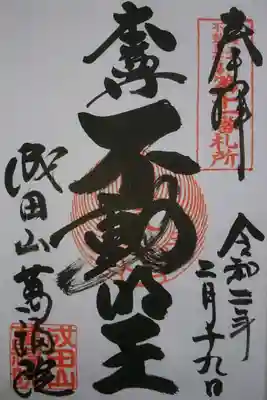 奉拝
番札所
令和二年
二月十九日
本尊 不動明王
成田山萬福院
成田山